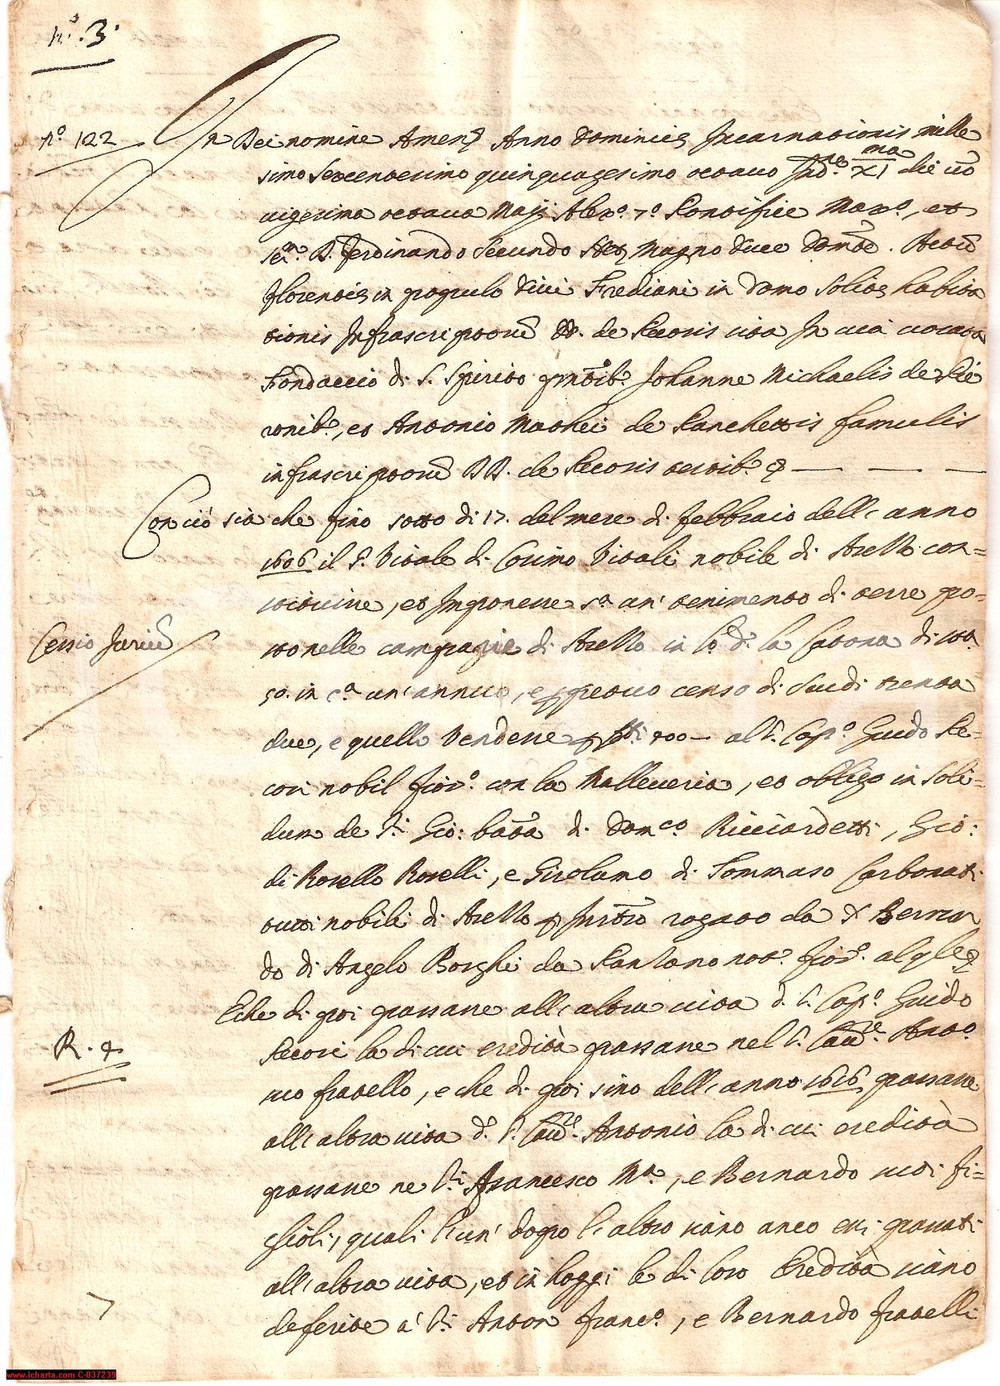 n.º 3.
nº 122
In Dei nomine Amen Anno Dominice Incarnationis mille
simo sexcentesimo quinquagesimo octavo Indne XIma die vo
vigesima octava Maij Alexo 7º Pontifice Maxo, et
Sermo D. Ferdinando Secundo Magno Duce Actum
Florentie in populo Divi Frediani in domo solite habita
tionis Infrascriptorum DD. de Pecoris sita In via vocata
Fondaccio di S. Spirito Johanne Michaelis de
et Antonio Mathei de Panchettis famulis
infrascriptorum DD. de Pecoris testibe
Con ciò sia che fino sotto di 17. del mese di febbraio dell'anno
1606 il S. Vitale di Cosimo Vitali nobile di Arezzo con=
stituisse, et Imponesse sa un' tenimento di terre po=
Cessio Jurium
sto nelle campagne di Arezzo in lo do la Catona di
in ca un'annuo, e perpetuo censo di Scudi trenta
due, e quello vendesse p 400 — al S. Capo Guido Pe=
cori nobil fiorno con la Mallevería, et obligo in soli=
dum de Si Gio: batta di Domco Ricciardetti, Gio:
di Rosello Roselli, e Girolamo di Tommaso Carbonati
tutti nobili di Arezzo p Instro rogato da Bernar
do di Angelo Borghi da Pantano noto. fiorno al qle
E che di poi passasse all'altra vita d. S. Capo Guido
R. 4
Pecori la di cui eredità passasse nel S. Cavre Anto
suo fratello, e che di poi sino dell'anno 1626 passasse
all'altra vita do S. Cavre Antonio la di cui eredità
passasse ne Si Francesco Ma, e Bernardo suoi fi=
glioli, quali l'un' dopo l'altro siano anco essi passati
all'altra vita, et in hoggi le di loro Eredità siano
deferite a' Si Anton Franco, e Bernardo fratelli
www.icharta.com C-037239